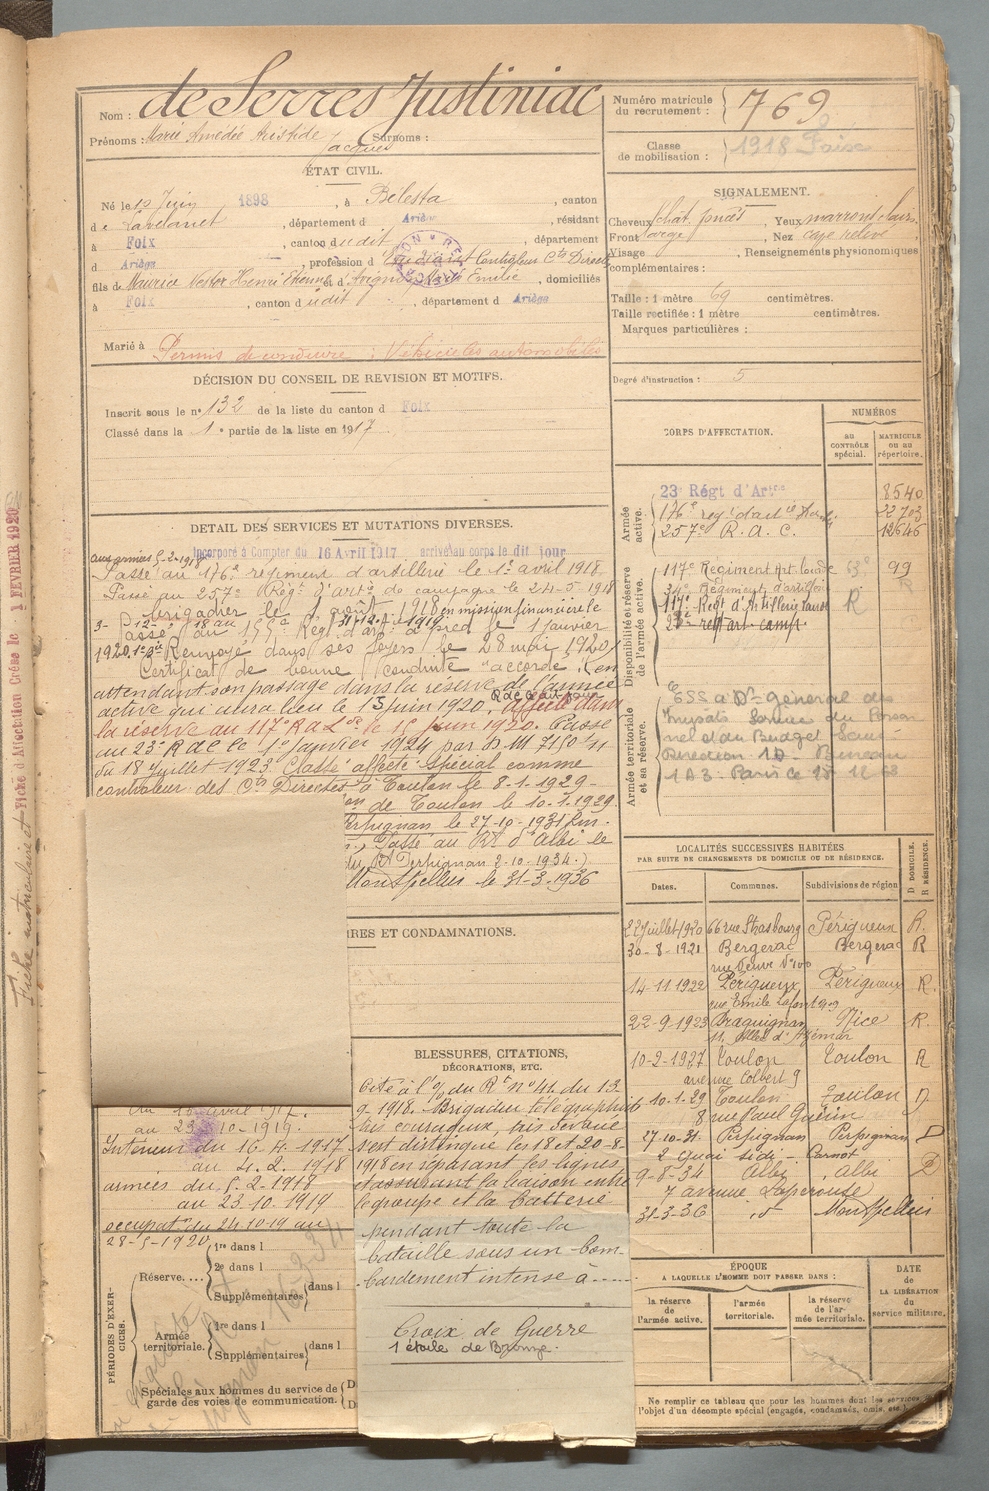 Nom : de Serres Justiniac
Prénoms : Marie Amedée Aristide Jacques Surnoms :
ÉTAT CIVIL.
Né le 10 Juin 1898, à Bélesta, canton
de Lavelanet, département d Ariège, résidant
à Foix, canton dudit, département
d Ariège, profession d Etudiant Controleur Ctns Directes
fils de Maurice Nestor Henri Etienne et d' Marie Emilie, domiciliés
à Foix, canton dudit, département d Ariège
Marié à
Permis de conduire : Véhicules automobiles
DÉCISION DU CONSEIL DE REVISION ET MOTIFS.
Inscrit sous le n° 132 de la liste du canton d Foix
Classé dans la 1e partie de la liste en 1917
DÉTAIL DES SERVICES ET MUTATIONS DIVERSES.
Incorporé à Compter du 16 Avril 1917 arrivé au corps le dit jour
aux armées 5-2-1918
Passé au 176e régiment d'artillerie le 1er avril 1918
Passé au 257e Régt d'artie de campagne le 24-5-1918
brigadier le 1 août 1918 en mission financière le
3-12-18 au 31-12-1919
Passé au 155e Régt d'art à pied le 1 janvier
1920. Renvoyé dans ses foyers le 28 mai 1920
Certificat de bonne conduite "accordé" (en
attendant son passage dans la réserve de l'armée
active qui aura lieu le 15 juin 1920, affecté dans
la réserve au 117e R.A.Lde le 15 Juin 1920. Passé
au 23e R d C le 1er Janvier 1924 par D M 7150 1/11
du 18 Juillet 1923 Classé affecté spécial comme
controleur des Ctns Directes à Toulon le 8-1-1929
de Toulon le 10-1-1929
Perpignan le 27-10-1931
Passé au Rt d'Albi le
du Rt Perpignan 2-10-1934.)
Montpellier le 31-3-1936
IRES ET CONDAMNATIONS.
BLESSURES, CITATIONS,
DÉCORATIONS, ETC.
Cité à l'o/ du Rt n° 41 du 13
9-1918. Brigadier téléphoniste
très courageux, très dévoué
s'est distingué les 18 et 20-8-
1918 en réparant les lignes
et assurant la liaison entre
le groupe et la batterie
pendant toute la
bataille sous un bom-
bardement intense à
Croix de Guerre
1 étoile de Bronze.
du 16 avril 1917.
au 23-10-1919.
Interieur du 16.4.1917
au 4.2.1918
armées du 5-2-1918
au 23.10.1919
occupat. du 24.10.19 au
28-5-1920
PÉRIODES D'EXERCICES.
Réserve.... 1re dans l
2e dans l
Supplémentaires dans l
Armée territoriale. 1re dans l
Supplémentaires dans l
Spéciales aux hommes du service de
garde des voies de communication.
Numéro matricule du recrutement : 769
Classe de mobilisation : 1918
SIGNALEMENT.
Cheveux chat. foncés Yeux marrons clairs
Front large, Nez cave relevé
Visage, Renseignements physionomiques
complémentaires :
Taille : 1 mètre 69 centimètres.
Taille rectifiée : 1 mètre centimètres.
Marques particulières :
Degré d'instruction : 5
CORPS D'AFFECTATION.
NUMÉROS
au CONTRÔLE spécial.
MATRICULE ou au répertoire.
Armée active.
23e Régt d'Artie 8540
176e reg. d'artie 22703
257e R. A. C. 12646
Disponibilité et réserve de l'armée active.
117e Regiment Art. Lourde 99
Régiment d'artillerie
117e Régt d'Artillerie Lourde R
23e regt art. camp.
Armée territoriale et sa réserve.
Don Général des
Impots Service du Person
nel et du Budget Sous-
Direction 1D Bureau
1A3. Paris
LOCALITÉS SUCCESSIVES HABITÉES
PAR SUITE DE CHANGEMENTS DE DOMICILE OU DE RÉSIDENCE.
Dates. Communes. Subdivisions de région D DOMICILE. R RÉSIDENCE.
22 Juillet 1920 66 rue Strasbourg Périgueux R.
30-8-1921 Bergerac Bergerac R
rue Neuve
14-11-1922 Périgueux Périgueux R.
rue Emile Lafont
22-9-1923 Draguignan Nice R.
11, Allée d'Azémar
10-2-1927 Toulon Toulon R
avenue Colbert 9
10-1.29 Toulon Toulon D
8 rue Paul Guérin
27-10-31. Perpignan Perpignan D
2 Quai Sidi-Carnot
9-8-34 Albi Albi D
7 avenue Laperouse
31-3-36 id Montpellier
ÉPOQUE
A LAQUELLE L'HOMME DOIT PASSER DANS :
la réserve de l'armée active.
l'armée territoriale.
la réserve de l'armée territoriale.
DATE de LA LIBÉRATION du service militaire.
Ne remplir ce tableau que pour les hommes dont les services
l'objet d'un décompte spécial (engagés, condamnés, omis, etc.)
Fiche matriculaire et Fiche d'Affection Créés le 1 FEVRIER 1920